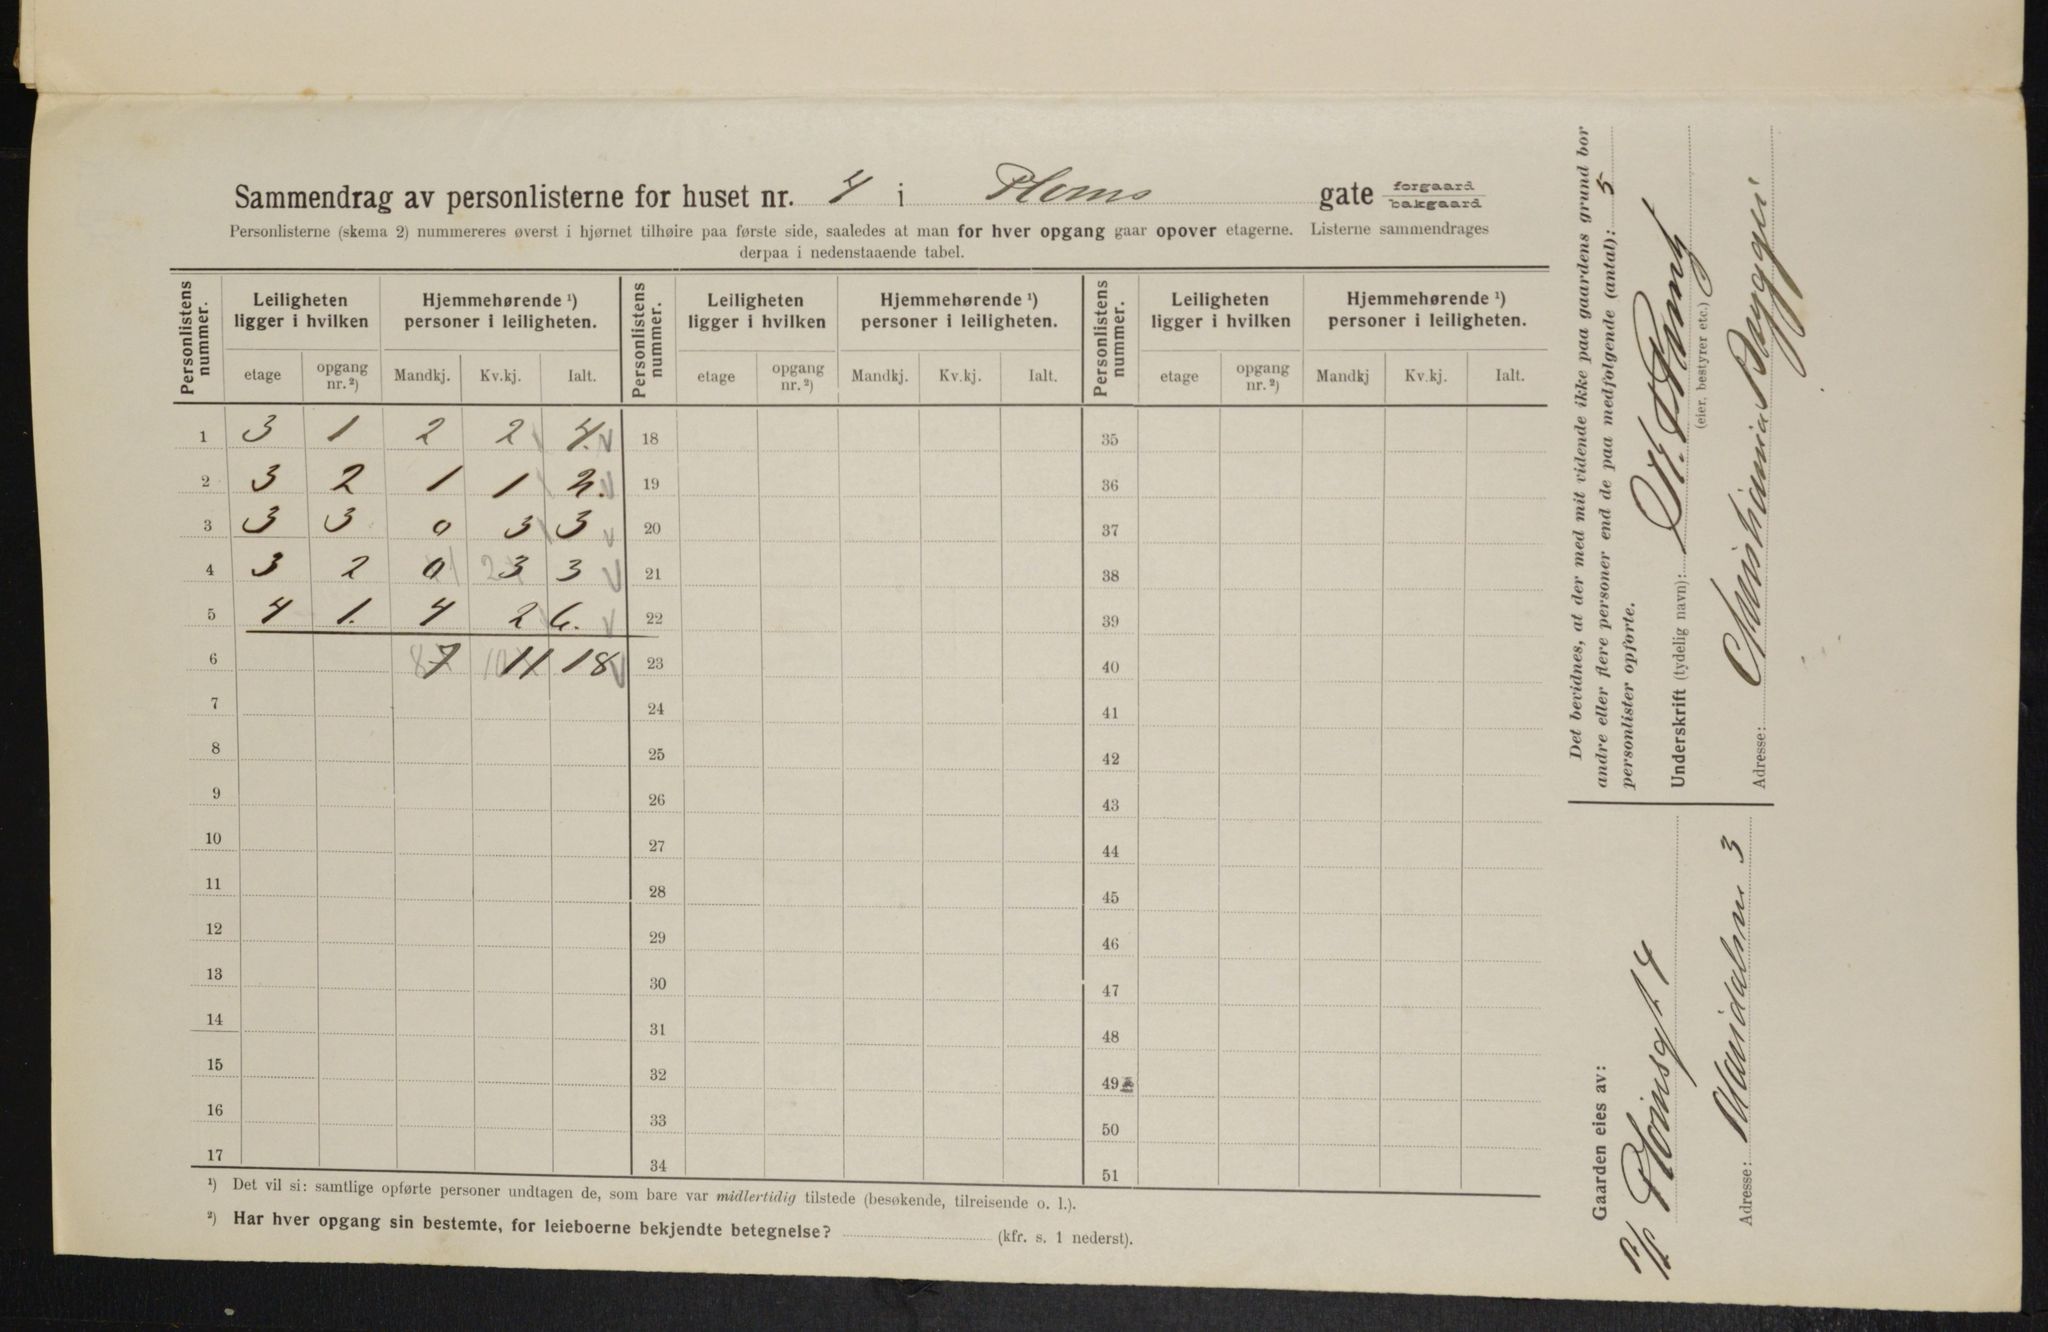 Sammendrag av personlisterne for huset nr. 4 i Ploens gate forgaard bakgaard
Personlisterne (skema 2) nummereres øverst i hjørnet tilhøire paa første side, saaledes at man for hver opgang gaar opover etagerne. Listerne sammendrages
derpaa i nedenstaaende tabel.
Personlistens nummer. Leiligheten ligger i hvilken Hjemmehørende ¹) personer i leiligheten. Personlistens nummer. Leiligheten ligger i hvilken Hjemmehørende ¹) personer i leiligheten. Personlistens nummer. Leiligheten ligger i hvilken Hjemmehørende ¹) personer i leiligheten.
etage opgang nr. ²) Mandkj. Kv.kj. Ialt. etage opgang nr. ²) Mandkj. Kv.kj. Ialt. etage opgang nr. ²) Mandkj Kv.kj. Ialt.
1 3 1 2 2 4. 18 35
2 3 2 1 1 2. 19 36
3 3 3 0 3 3 20 37
4 3 2 0 1 2 3 3 21 38
5 4 1. 4 2 6. 22 39
6 8 7 10 11 18 23 40
7 24 41
8 25 42
9 26 43
10 27 44
11 28 45
12 29 46
13 30 47
14 31 48
15 32 49
16 33 50
17 34 51
¹) Det vil si: samtlige opførte personer undtagen de, som bare var midlertidig tilstede (besøkende, tilreisende o. l.).
²) Har hver opgang sin bestemte, for leieboerne bekjendte betegnelse? (kfr. s. 1 nederst).
Det bevidnes, at der med mit vidende ikke paa gaardens grund bor
andre eller flere personer end de paa medfølgende (antal): 5
personlister opførte.
Underskrift (tydelig navn):
(eier, bestyrer etc.)
Adresse: Christiania Byggeri
Gaarden eies av:
A/S Ploensgt 4
Adresse: 3